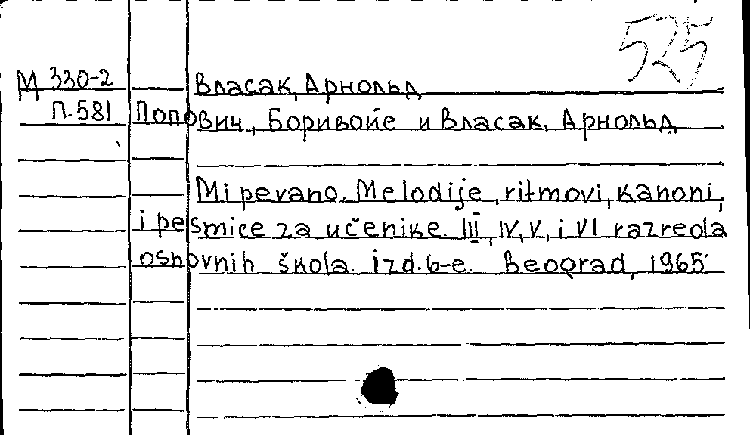 525
М 330-2 Власак, Арнольд
П-581 Попович, Боривойе и Власак, Арнольд
Mi pevano. Melodije, ritmovi, kanoni,
i pesmice za učenike III, IV, V, i VI razreola
osnovnih škola. izd. 6-e. Beograd, 1965